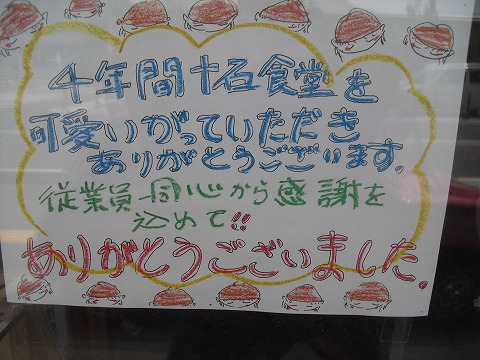 4年間十石食堂を
可愛いがっていただき
ありがとうございます.
従業員一同心から感謝を
込めて!!
ありがとうございました.